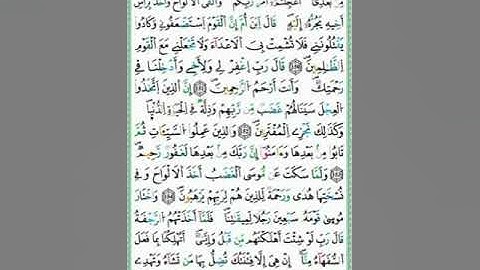 مِنۢ بَعْدِيَ أَعَجِلْتُمُۥ أَمْرَ رَبِّكُمْ وَأَلْقَى اَلَالْوَاحَ وَأَخَذَ بِرَأْسِ
أَخِيهِ يَجُرُّهُۥ إِلَيْهِ قَالَ اَبْنَ أُمَّ إِنَّ اَلْقَوْمَ اَسْتَضْعَفُونِي وَكَادُواْ
يَقْتُلُونَنِي فَلَا تُشْمِتْ بِيَ اَلَاعْدَآءَ وَلَا تَجْعَلْنِي مَعَ اَلْقَوْمِ
اِلظَّٰلِمِينَ ۝ قَالَ رَبِّ اِغْفِرْ لِي وَلِأَخِي وَأَدْخِلْنَا فِي
رَحْمَتِكَ وَأَنتَ أَرْحَمُ اُلرَّٰحِمِينَ ۝ إِنَّ اَلذِينَ اَتَّخَذُواْ
اُلْعِجْلَ سَيَنَالُهُمْ غَضَبٌ مِّن رَّبِّهِمْ وَذِلَّةٌ فِي اِلْحَيَوٰةِ اِلدُّنْيَا
وَكَذَٰلِكَ نَجْزِي اِلْمُفْتَرِينَ ۝ وَالذِينَ عَمِلُواْ اُلسَّيِّـَٔاتِ ثُمَّ
تَابُواْ مِنۢ بَعْدِهَا وَءَامَنُوٓاْ إِنَّ رَبَّكَ مِنۢ بَعْدِهَا لَغَفُورٌ رَّحِيمٌ
۝ وَلَمَّا سَكَتَ عَن مُّوسَى اَلْغَضَبُ أَخَذَ اَلَالْوَاحَ وَفِي
نُسْخَتِهَا هُدًى وَرَحْمَةٌ لِّلذِينَ هُمْ لِرَبِّهِمْ يَرْهَبُونَ ۝ وَاخْتَارَ
مُوسَىٰ قَوْمَهُۥ سَبْعِينَ رَجُلًا لِّمِيقَٰتِنَا فَلَمَّآ أَخَذَتْهُمُ اُلرَّجْفَةُ
قَالَ رَبِّ لَوْ شِئْتَ أَهْلَكْتَهُم مِّن قَبْلُ وَإِيَّٰيَ أَتُهْلِكُنَا بِمَا فَعَلَ
اَلسُّفَهَآءُ مِنَّآ إِنْ هِيَ إِلَّا فِتْنَتُكَ تُضِلُّ بِهَا مَن تَشَآءُ وَتَهْدِي